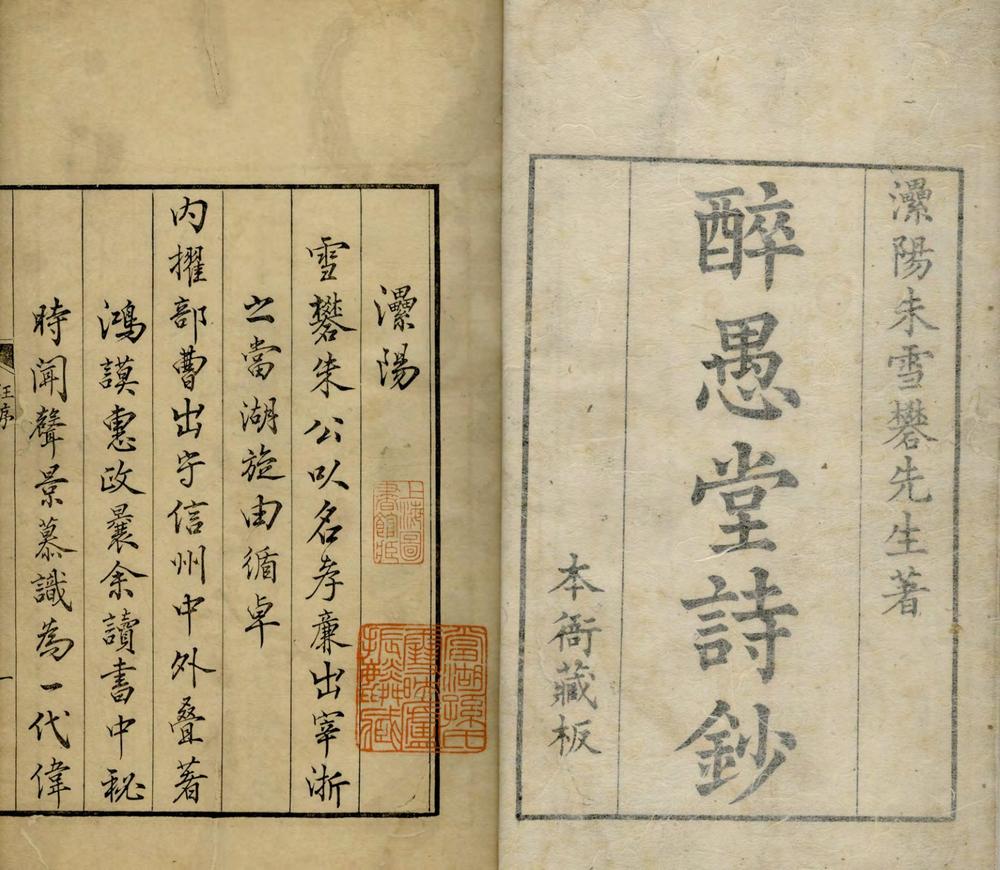 灤陽朱雪礬先生著
醉愚堂詩鈔
本衙藏板
灤陽
雪礬朱公以名孝廉出宰浙
之當湖旋由循卓
内擢部曹出守信州中外疊著
鴻謨惠政曩余讀書中秘
時聞聲景慕識為一代偉
汪序
一
上海圖書館藏